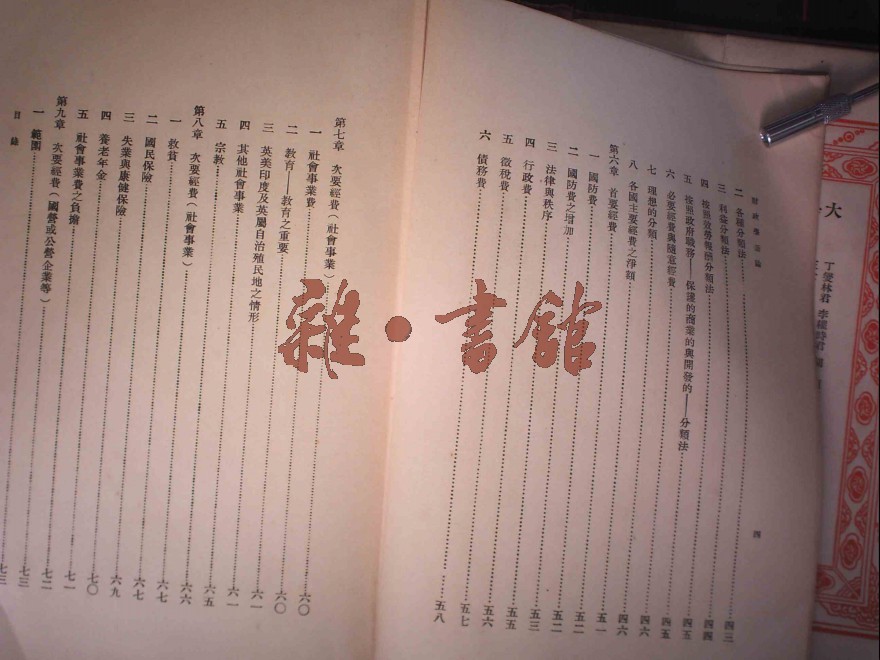 財政學新論
四
二 各種分類法 四三
三 利益分類法 四四
四 按照效勞報酬分類法 四四
五 按照政府職務——保護的商業的與開發的——分類法 四五
六 必要經費與隨意經費 四五
七 理想的分類 四六
八 各國主要經費之淨額 四六
第六章 首要經費
一 國防費 五一
二 國防費之增加 五二
三 法律與秩序 五二
四 行政費 五三
五 徵稅費 五五
六 債務費
五六
五七
五八
第七章 次要經費(社會事業) 六〇
一 社會事業費 六〇
二 教育——教育之重要 六〇
三 英美印度及英屬自治殖民地之情形 六一
四 其他社會事業 六一
五 宗教 六五
第八章 次要經費(社會事業) 六六
一 救貧 六七
二 國民保險 六七
三 失業與康健保險 六九
四 養老年金 七〇
五 社會事業費之負擔 七一
第九章 次要經費(國營或公營企業等) 七二
一 範圍 七三
目錄
七三
大
丁燮林君
雜·書館